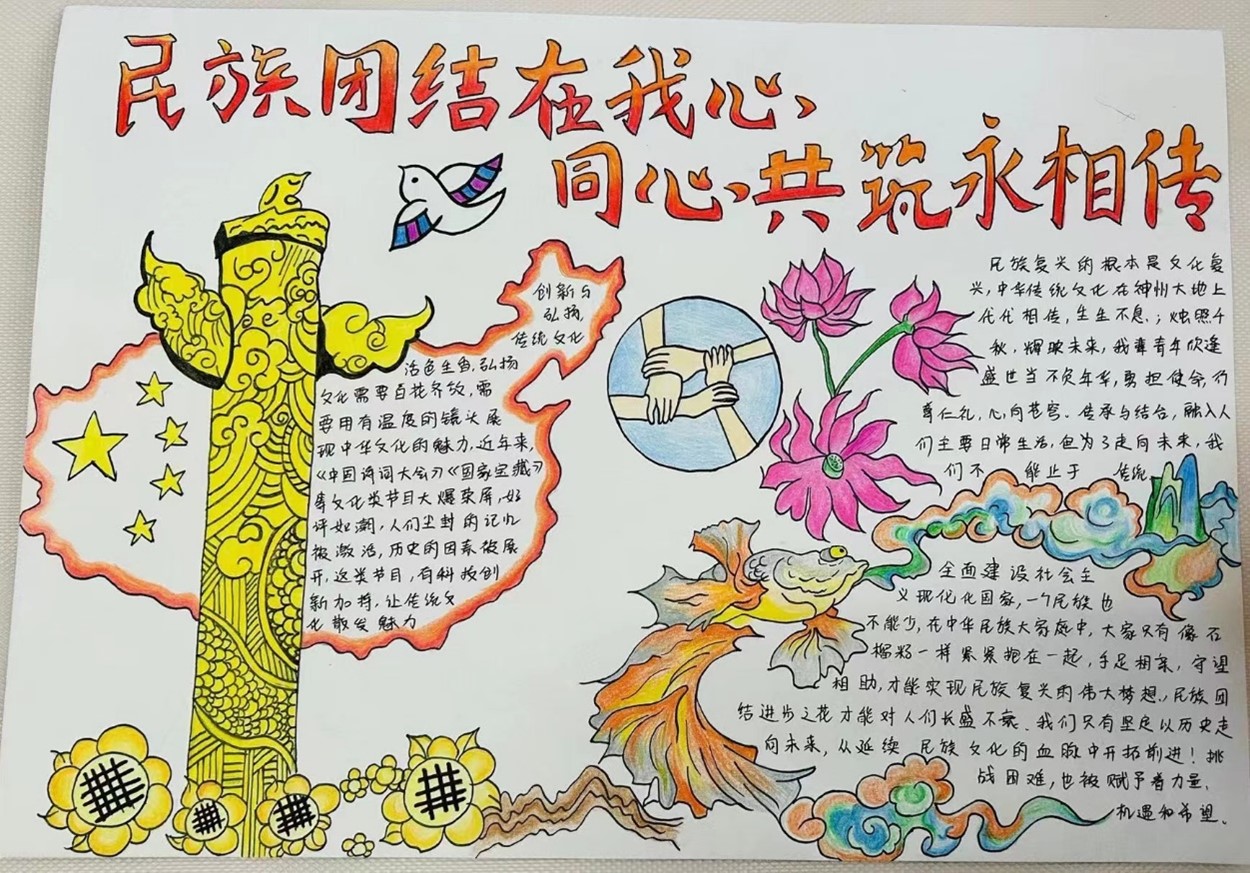 民族团结在我心、
同心、共筑永相传
创新与
弘扬
传统文化
活色生香,弘扬
文化需要百花齐放,需
要用有温度的镜头展
现中华文化的魅力,近年来,
《中国诗词大会》《国家宝藏》
等文化类节目大爆荧屏,好
评如潮,人们尘封的记忆
被激活,历史的因素被展
开,这类节目,有科技创
新加持,让传统文
化散发魅力
民族复兴的根本是文化复
兴,中华传统文化在神州大地上
代代相传,生生不息;烛照千
秋,辉映未来,我辈青年欣逢
盛世当不负年华,勇担使命,行
尊仁礼,心向苍穹、传承与结合,融入人
们主要日常生活,但为了走向未来,我
们不 能止于 传统
全面建设社会主
义现代化国家,一个民族也
不能少,在中华民族大家庭中,大家只有像石
榴籽一样紧紧抱在一起,手足相亲,守望
相助,才能实现民族复兴的伟大梦想.,民族团
结进步之花才能对人们长盛不衰、我们只有坚定以历史走
向未来,从延续 民族文化的血脉中开拓前进!挑
战困难,也被赋予着力量、
机遇和希望、